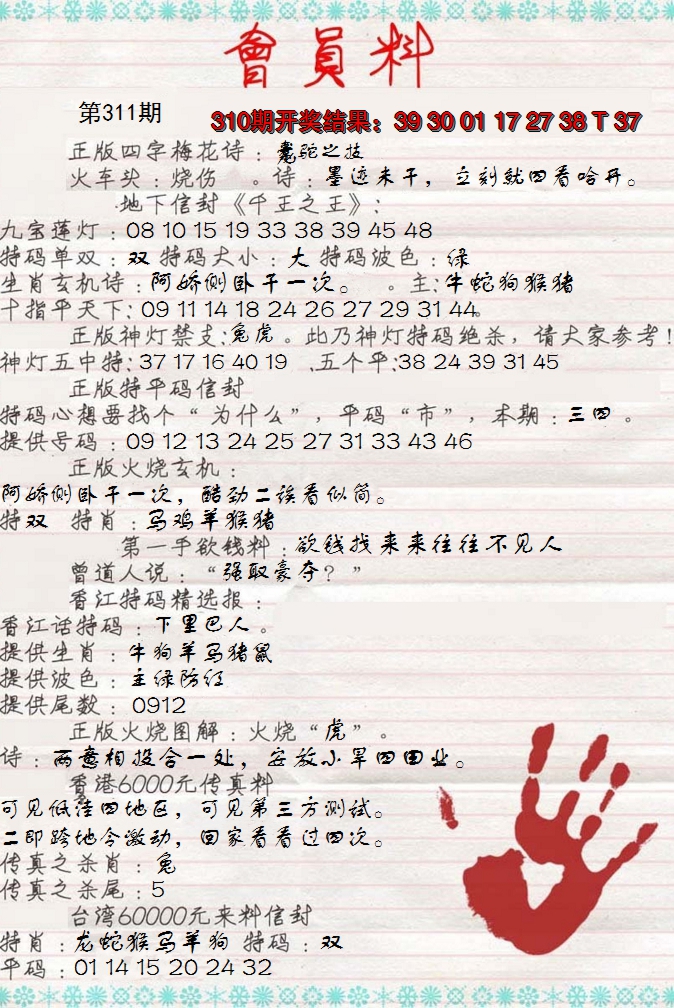 會員料
第311期
310期开奖结果：39 30 01 17 27 38 T 37
正版四字梅花诗：黔驼之技
火车头：烧伤 。诗：墨迹未干，立刻就四看啥开。
地下信封《千王之王》：
九宝莲灯：08 10 15 19 33 38 39 45 48
特码单双：双 特码大小：大 特码波色：绿
生肖玄机诗：阿娇侧卧干一次。 。主：牛蛇狗猴猪
十指平天下：09 11 14 18 24 26 27 29 31 44。
正版神灯禁支：兔虎。此乃神灯特码绝杀，请大家参考！
神灯五中特：37 17 16 40 19 .五个平：38 24 39 31 45
正版特平码信封
特码心想要找个“为什么”，平码“市”，本期：三四。
提供号码：09 12 13 24 25 27 31 33 43 46
正版火烧玄机：
阿娇侧卧干一次，酷劲二诶看似简。
特双 特肖：马鸡羊猴猪
第一手欲钱料：欲钱找来来往往不见人
曾道人说：“强取豪夺？”
香江特码精选报：
香江话特码：下里巴人。
提供生肖：牛狗羊马猪鼠
提供波色：主绿防红
提供尾数：0912
正版火烧图解：火烧“虎”。
诗：两意相投合一处，安放小旱四回业。
香港6000元传真料
可见低洼四地区，可见第三方测试。
二即跨地令激动，回家看看过四次。
传真之杀肖：兔
传真之杀尾：5
台湾60000元来料信封
特肖：龙蛇猴马羊狗 特码：双
平码：01 14 15 20 24 32